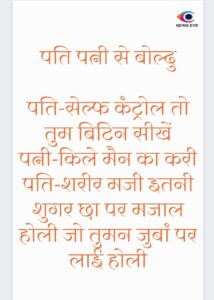 NEWS EYE
पति पत्नी से बोल्दु
पति-सेल्फ कंट्रोल तो
तुम बिटिन सीखें
पत्नी-किले मैन का करी
पति-शरीर मजी इतनी
शुगर छा पर मजाल
होली जो तुमन जुबां पर
लाई होली